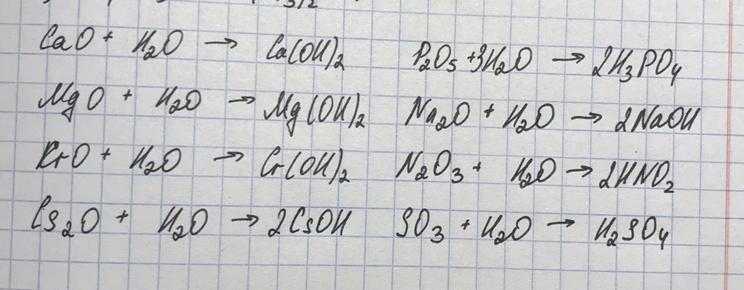 CaO + H₂O → Ca(OH)₂ P₂O₅ + 3H₂O → 2H₃PO₄
MgO + H₂O → Mg(OH)₂ Na₂O + H₂O → 2NaOH
CrO + H₂O → Cr(OH)₂ N₂O₃ + H₂O → 2HNO₂
Cs₂O + H₂O → 2CsOH SO₃ + H₂O → H₂SO₄